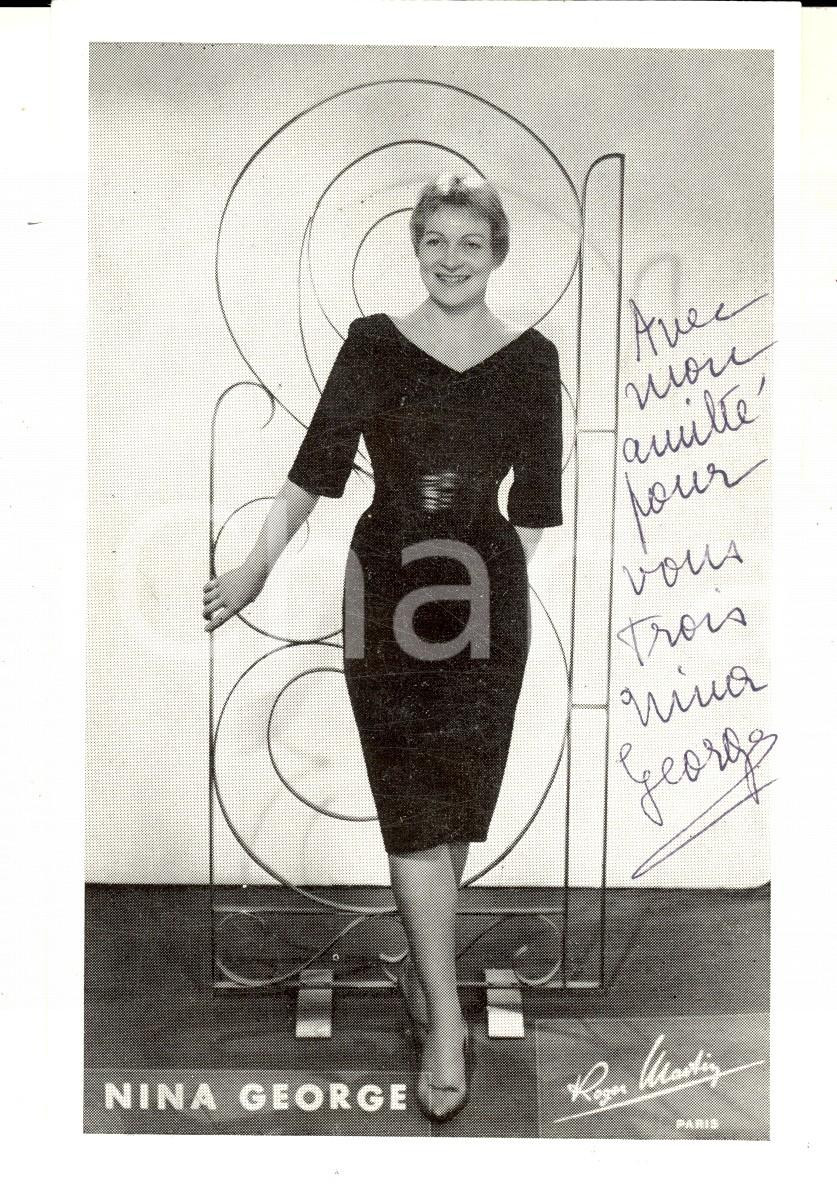 Avec
mon
amitié
pour
vous
trois
Nina
George
NINA GEORGE
Roger Martin
PARIS